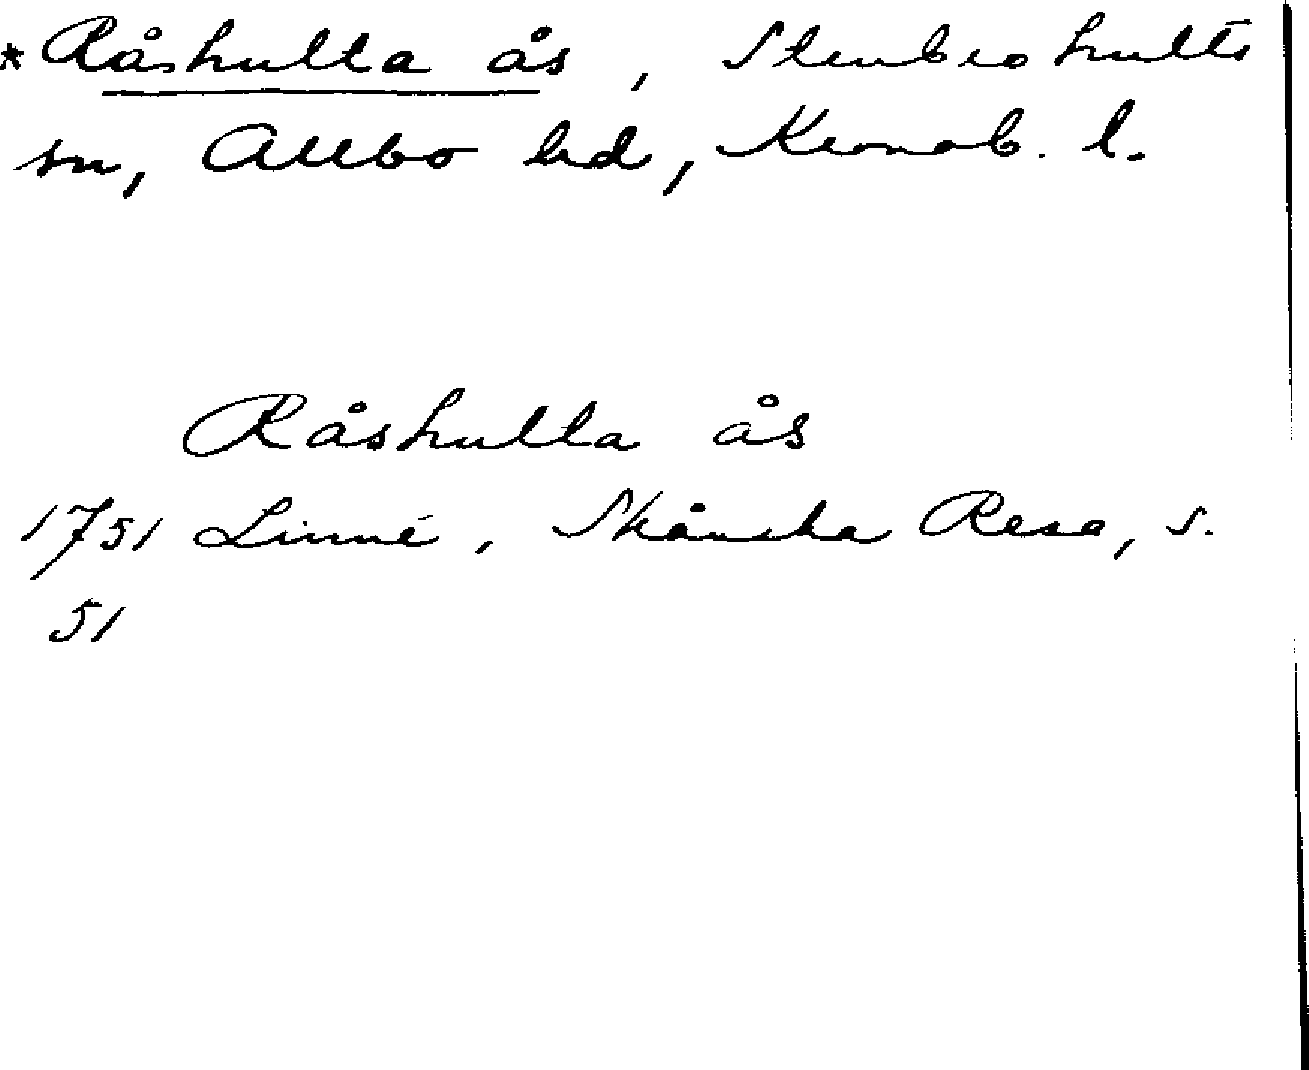 *Råshulta ås, Stenbrohults
sn, Allbo hd, Kronob. l.
Råshulta ås
1751 Linné, Skånska Resa, s.
51